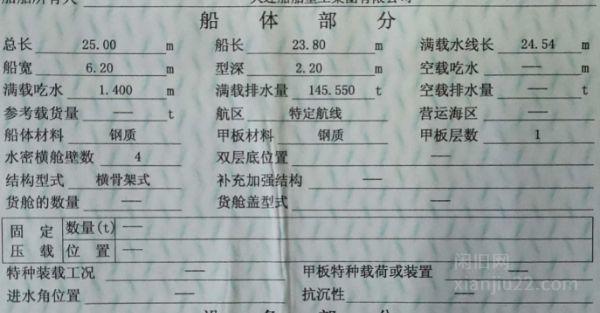 船舶所有人 大连船舶重工集团有限公司
船 体 部 分
总长 25.00 m 船长 23.80 m 满载水线长 24.54 m
船宽 6.20 m 型深 2.20 m 空载吃水 — m
满载吃水 1.400 m 满载排水量 145.550 t 空载排水量 — t
参考载货量 — t 航区 特定航线 营运海区 —
船体材料 钢质 甲板材料 钢质 甲板层数 1
水密横舱壁数 4 双层底位置 —
结构型式 横骨架式 补充加强结构 —
货舱的数量 — 货舱盖型式 —
固定压载 数量(t) —
位置 —
特种装载工况 — 甲板特种载荷或装置 —
进水角位置 — 抗沉性 —
闲旧网
xianjiu22.com